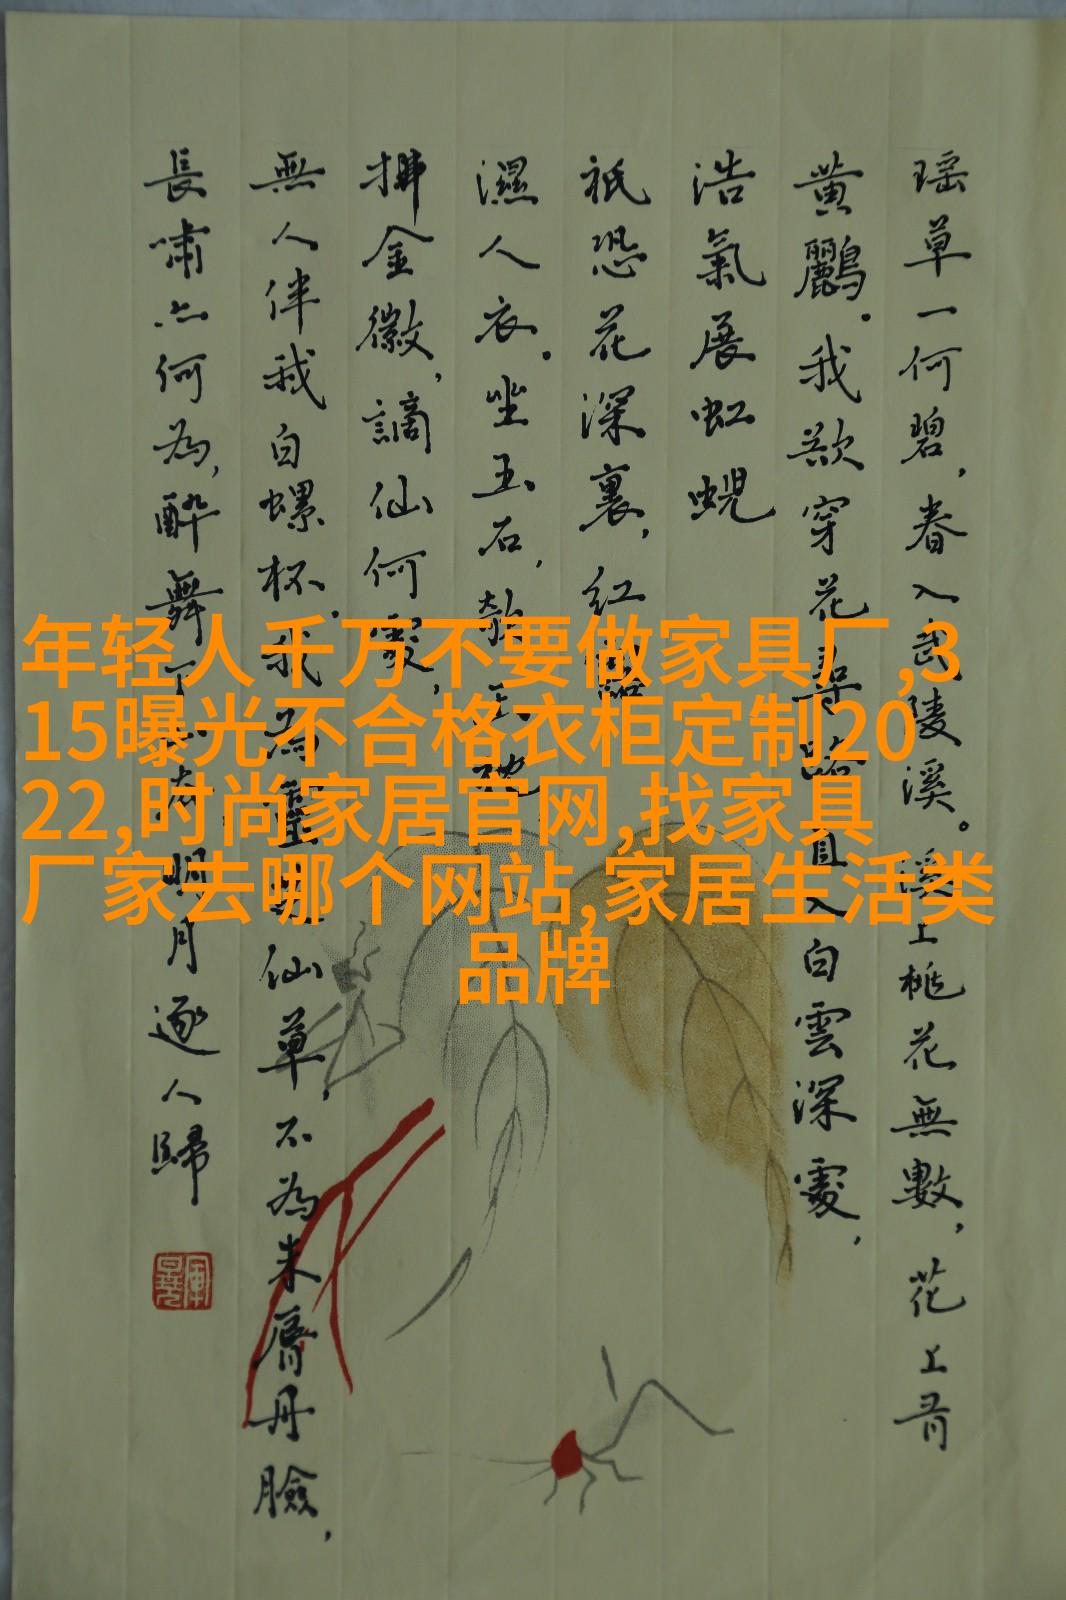 瑶草一何碧，春入武陵溪。溪上桃花無數，花上有
黄鸝。我欲穿花尋路，直入白雲深處，
浩氣展虹蜺
祇恐花深裏，紅露
濕人衣。坐玉石，欹玉枕
拂金徽，謫仙何處，
無人伴我白螺杯。我為靈芝仙草，不為朱脣丹臉，
長嘯亦何為，醉舞下山去，明月逐人歸
年轻人千万不要做家具厂,3
15曝光不合格衣柜定制20
22,时尚家居官网,找家具
厂家去哪个网站,家居生活类
品牌